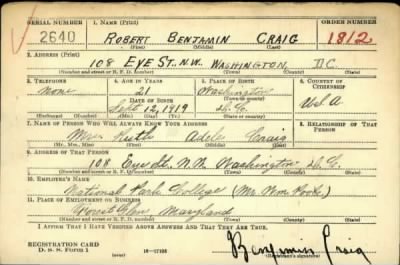 SERIAL NUMBER 1. NAME (Print) ORDER NUMBER
2640 ROBERT BENJAMIN CRAIG 1812
(First) (Middle) (Last)
2. ADDRESS (Print)
108 EYE ST. N.W. WASHINGTON, D.C.
(Number and street or R. F. D. number) (Town) (County) (State)
3. TELEPHONE 4. AGE IN YEARS 5. PLACE OF BIRTH 6. COUNTRY OF CITIZENSHIP
none 21 Washington
DATE OF BIRTH (Town or county)
Sept 12, 1919 D.C. U S A
(Exchange) (Number) (Mo.) (Day) (Yr.) (State or country)
7. NAME OF PERSON WHO WILL ALWAYS KNOW YOUR ADDRESS 8. RELATIONSHIP OF THAT PERSON
Mrs. Ruth Adele Craig
(Mr., Mrs., Miss) (First) (Middle) (Last)
9. ADDRESS OF THAT PERSON
108 Eye St. N.W. Washington D.C.
(Number and street or R. F. D. number) (Town) (County) (State)
10. EMPLOYER'S NAME
National Park College (Mr. Wm. Hook)
11. PLACE OF EMPLOYMENT OR BUSINESS
Forest Glen Maryland
(Number and street or R. F. D. number) (Town) (County) (State)
I AFFIRM THAT I HAVE VERIFIED ABOVE ANSWERS AND THAT THEY ARE TRUE.
REGISTRATION CARD
D. S. S. Form 1 Benjamin Craig
(Registrant's signature)